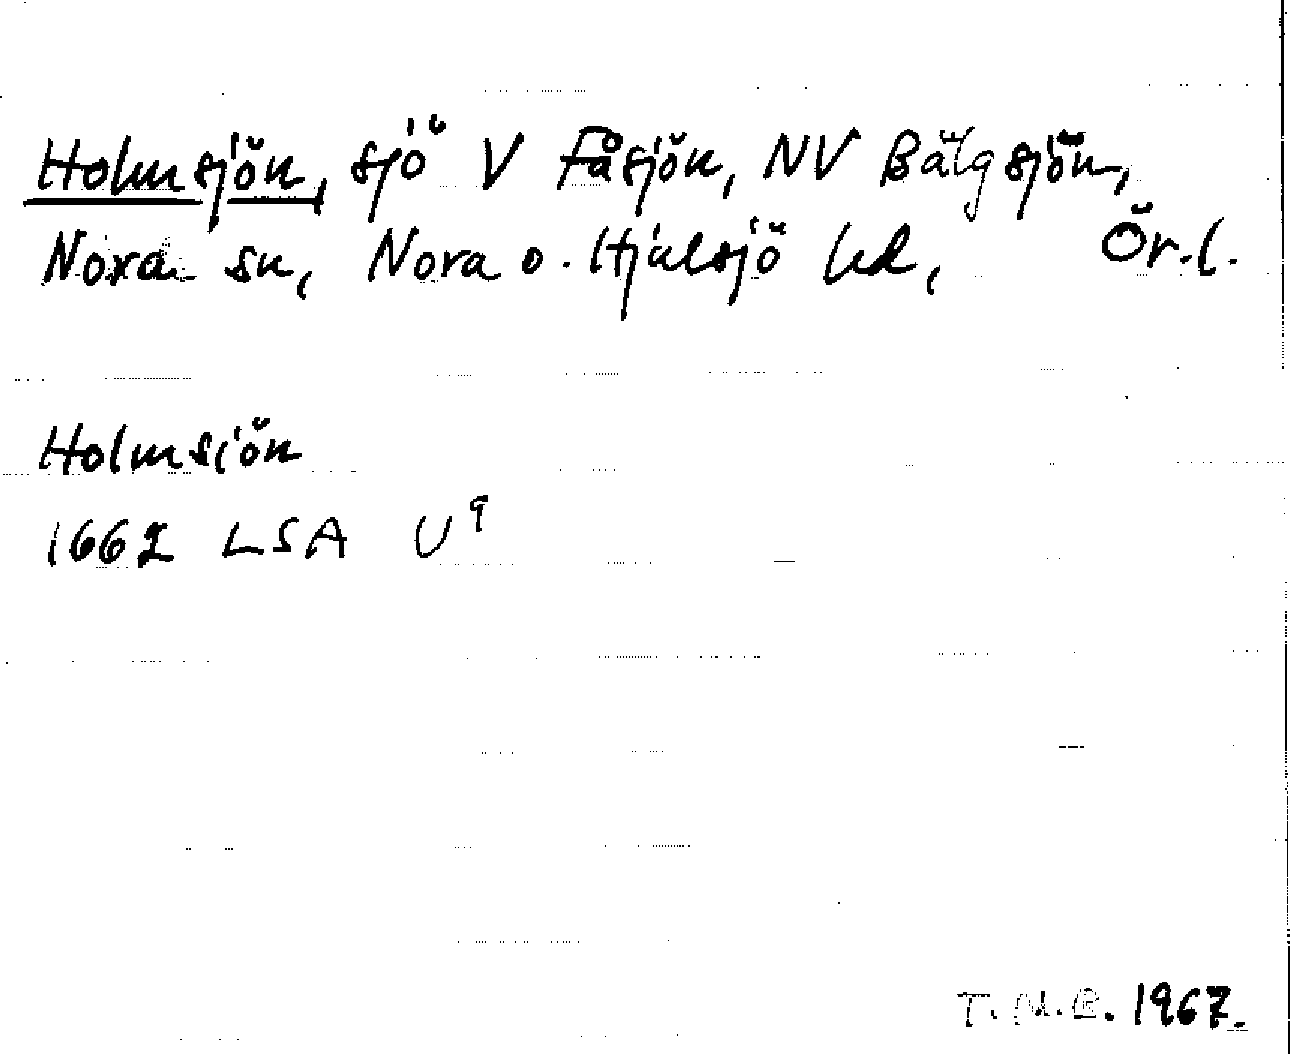 Holmsjön, sjö V Fåsjön, NV Bälgsjön,
Nora sn, Nora o. Hjulsjö hd, Ör. l.
Holmsiön
1662 LSA U⁹
T. M. B. 1967.